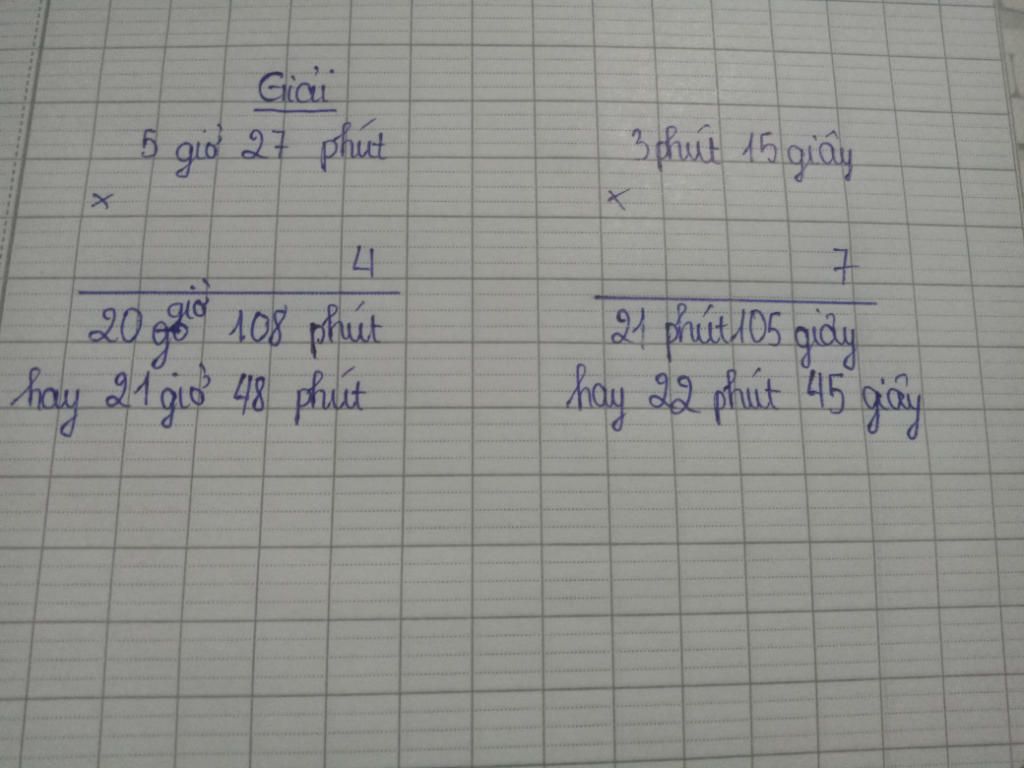 Giải
5 giờ 27 phút
×
4
20 giờ 108 phút
hay 21 giờ 48 phút
3 phút 15 giây
×
7
21 phút 105 giây
hay 22 phút 45 giây